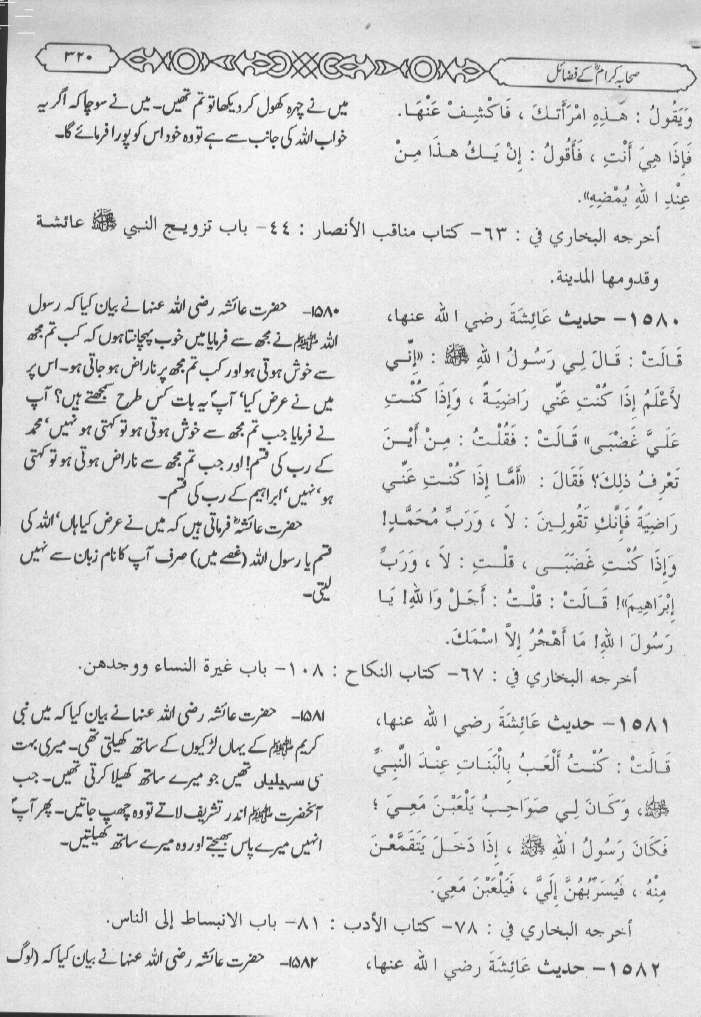 صحابہ کرامؓ کے فضائل
۳۲۰
وَيَقُولُ : هَذِهِ امْرَأَتُكَ ، فَاكْشِفْ عَنْهَا.
فَإِذَا هِيَ أَنْتِ ، فَأَقُولُ : إِنْ يَكُ هذَا مِنْ
عِنْدِ اللهِ يُمْضِهِ».
میں نے چہرہ کھول کر دیکھا تو تم تھیں۔ میں نے سوچا کہ اگر یہ
خواب اللہ کی جانب سے ہے تو وہ خود اس کو پورا فرمائے گا۔
أخرجه البخاري في : ٦٣- كتاب مناقب الأنصار : ٤٤- باب تزويج النبي ﷺ عائشة
وقدومها المدينة.
١٥٨٠- حديث عَائِشَةَ رضي الله عنها،
قَالَتْ : قَالَ لِي رَسُولُ اللهِ ﷺ : «إِنِّي
لأَعْلَمُ إِذَا كُنْتِ عَنِّي رَاضِيَةً ، وَإِذَا كُنْتِ
عَلَيَّ غَضْبَى» قَالَتْ : فَقُلْتُ : مِنْ أَيْنَ
تَعْرِفُ ذلِكَ؟ فَقَالَ : «أَمَّا إِذَا كُنْتِ عَنِّي
رَاضِيَةً فَإِنَّكِ تَقُولِينَ : لاَ ، وَرَبِّ مُحَمَّدٍ!
وَإِذَا كُنْتِ غَضْبَى ، قُلْتِ : لاَ ، وَرَبِّ
إِبْرَاهِيمَ»! قَالَتْ : قُلْتُ : أَجَلْ وَاللهِ! يَا
رَسُولَ اللهِ! مَا أَهْجُرُ إِلاَّ اسْمَكَ.
۱۵۸۰- حضرت عائشہ رضی اللہ عنہا نے بیان کیا کہ رسول
اللہ ﷺ نے مجھ سے فرمایا میں خوب پہچانتا ہوں کہ کب تم مجھ
سے خوش ہوتی ہو اور کب تم مجھ پر ناراض ہو جاتی ہو۔ اس پر
میں نے عرض کیا‘ آپؐ یہ بات کس طرح سمجھتے ہیں؟ آپ
نے فرمایا جب تم مجھ سے خوش ہوتی ہو تو کہتی ہو نہیں‘ محمد
کے رب کی قسم! اور جب تم مجھ سے ناراض ہوتی ہو تو کہتی
ہو‘ نہیں‘ ابراہیم کے رب کی قسم۔
حضرت عائشہؓ فرماتی ہیں کہ میں نے عرض کیا ہاں‘ اللہ کی
قسم یا رسول اللہ (غصے میں) صرف آپ کا نام زبان سے نہیں
لیتی۔
أخرجه البخاري في : ٦٧- كتاب النكاح : ١٠٨- باب غيرة النساء ووجدهن.
١٥٨١- حديث عَائِشَةَ رضي الله عنها،
قَالَتْ : كُنْتُ أَلْعَبُ بِالْبَنَاتِ عِنْدَ النَّبِيِّ
ﷺ، وَكَانَ لِي صَوَاحِبُ يَلْعَبْنَ مَعِيَ ؛
فَكَانَ رَسُولُ اللهِ ﷺ ، إِذَا دَخَلَ يَتَقَمَّعْنَ
مِنْهُ ، فَيُسَرِّبُهُنَّ إِلَيَّ ، فَيَلْعَبْنَ مَعِيَ.
۱۵۸۱- حضرت عائشہ رضی اللہ عنہا نے بیان کیا کہ میں نبی
کریم ﷺ کے یہاں لڑکیوں کے ساتھ کھیلتی تھی۔ میری بہت
سی سہیلیاں تھیں جو میرے ساتھ کھیلا کرتی تھیں۔ جب
آنحضرت ﷺ اندر تشریف لاتے تو وہ چھپ جاتیں۔ پھر آپؐ
انہیں میرے پاس بھیجتے اور وہ میرے ساتھ کھیلتیں۔
أخرجه البخاري في : ٧٨- كتاب الأدب : ٨١- باب الانبساط إلى الناس.
١٥٨٢- حديث عَائِشَةَ رضي الله عنها،
۱۵۸۲- حضرت عائشہ رضی اللہ عنہا نے بیان کیا کہ (لوگ